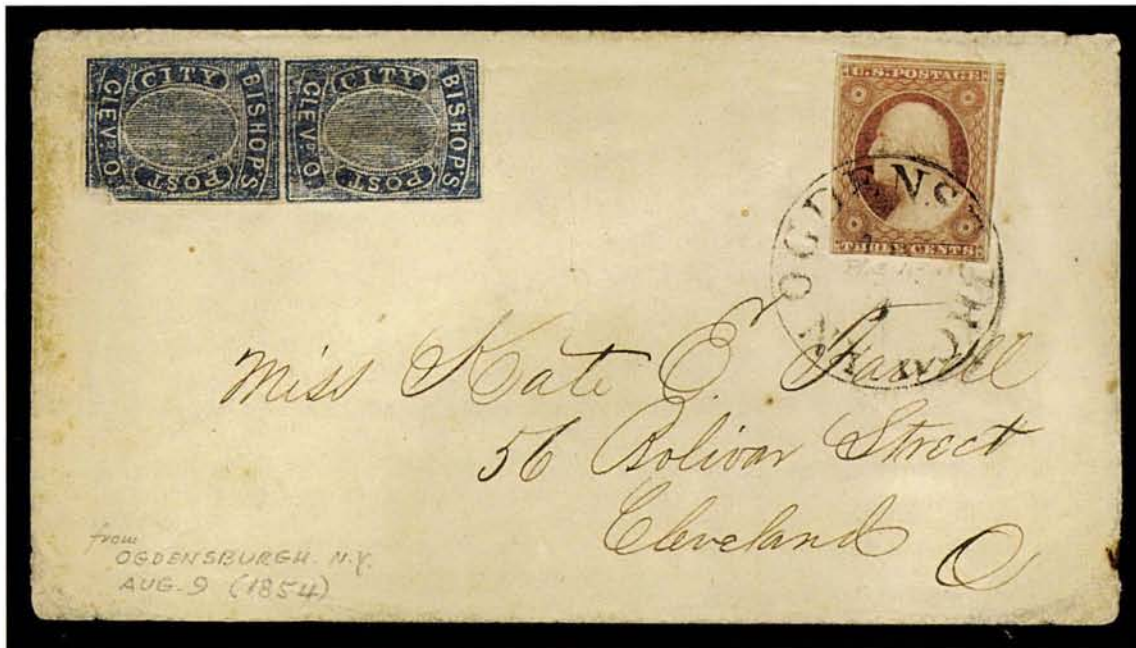 CITY
BISHOP'S
POST
CLEVD. O
CITY
BISHOP'S
POST
CLEVD. O
U.S. POSTAGE
THREE CENTS
OGDENSBURGH
Miss Kate E.
56 Bolivar Street
Cleveland
O
from
OGDENSBURGH. N.Y.
AUG. 9 (1854)